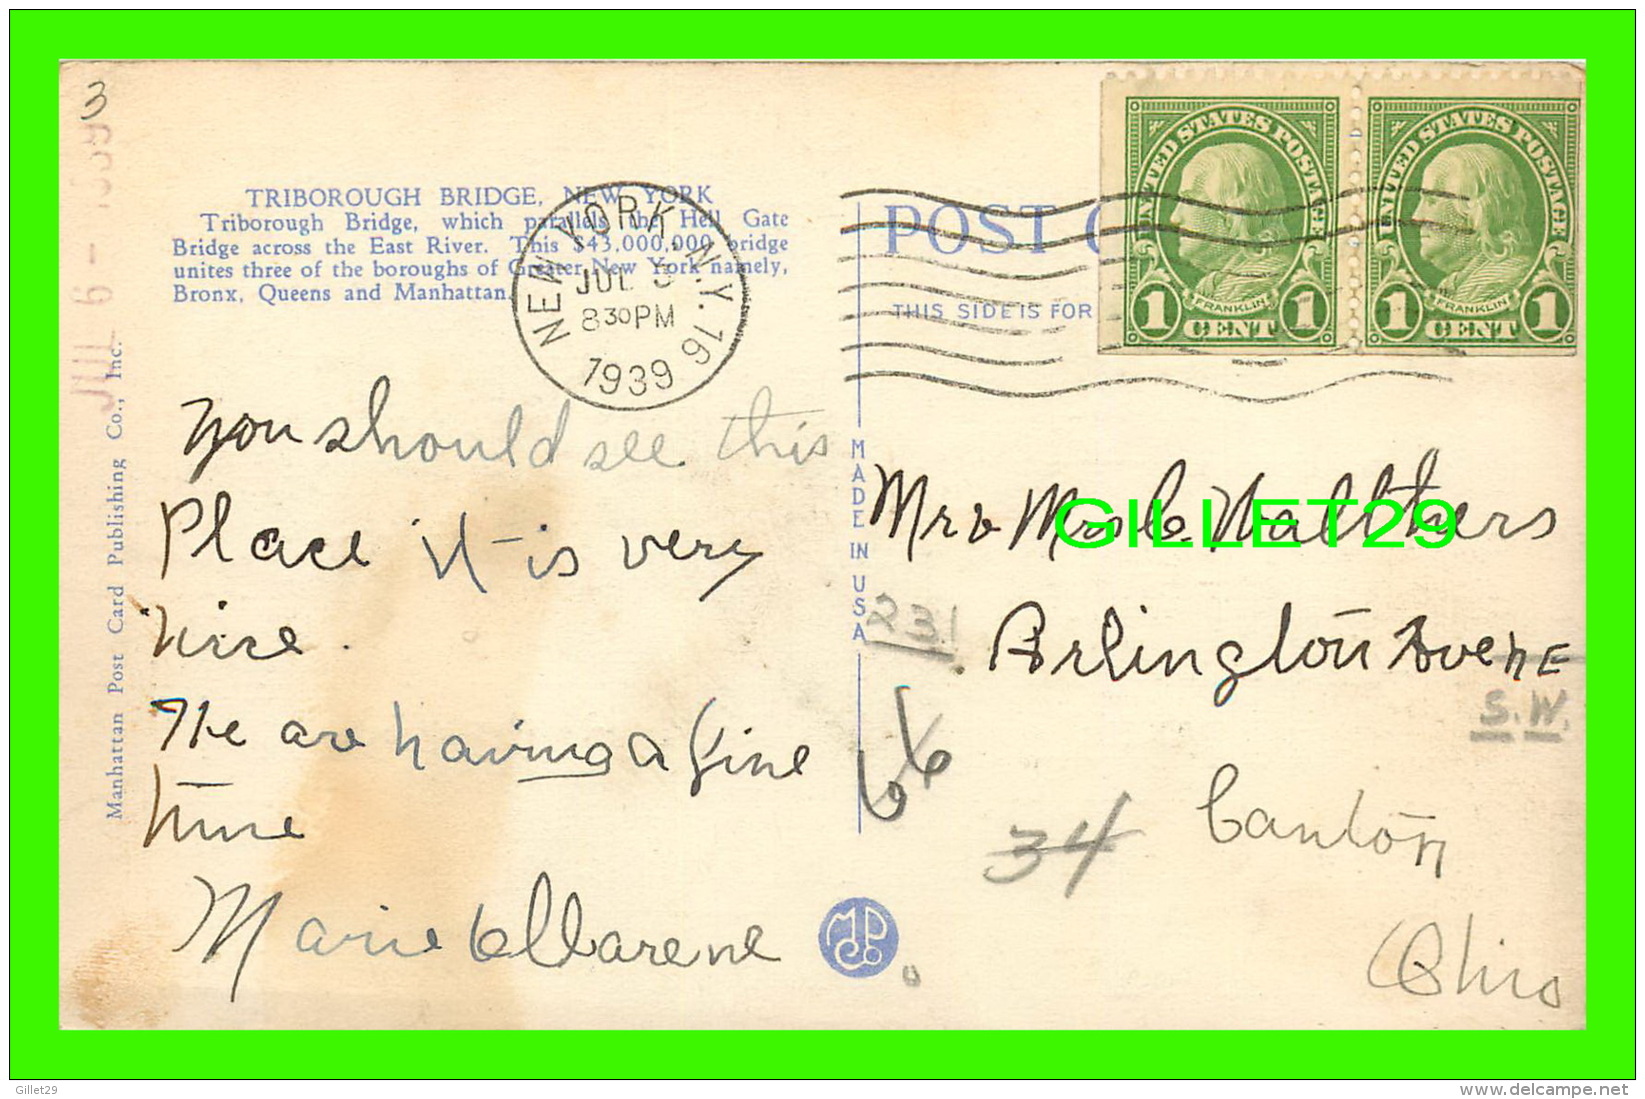 3
JUL 6 - 1939
TRIBOROUGH BRIDGE, NEW YORK
Triborough Bridge, which parallels the Hell Gate
Bridge across the East River. This $43,000,000 bridge
unites three of the boroughs of Greater New York namely,
Bronx, Queens and Manhattan.
NEW YORK, N.Y. 76
JUL 5
8 30 PM
1939
POST C
THIS SIDE IS FOR
UNITED STATES POSTAGE
FRANKLIN
1 CENT 1
UNITED STATES POSTAGE
FRANKLIN
1 CENT 1
you should see this
Place it is very
nice.
We are having a fine
time
Marie
Manhattan Post Card Publishing Co., Inc.
MADE IN USA
Mr & Mrs C. Walthers
GILLET29
231
Arlington Avene
S.W.
66
34
Canton
Ohio
MPC
Gillet29
www.delcampe.net